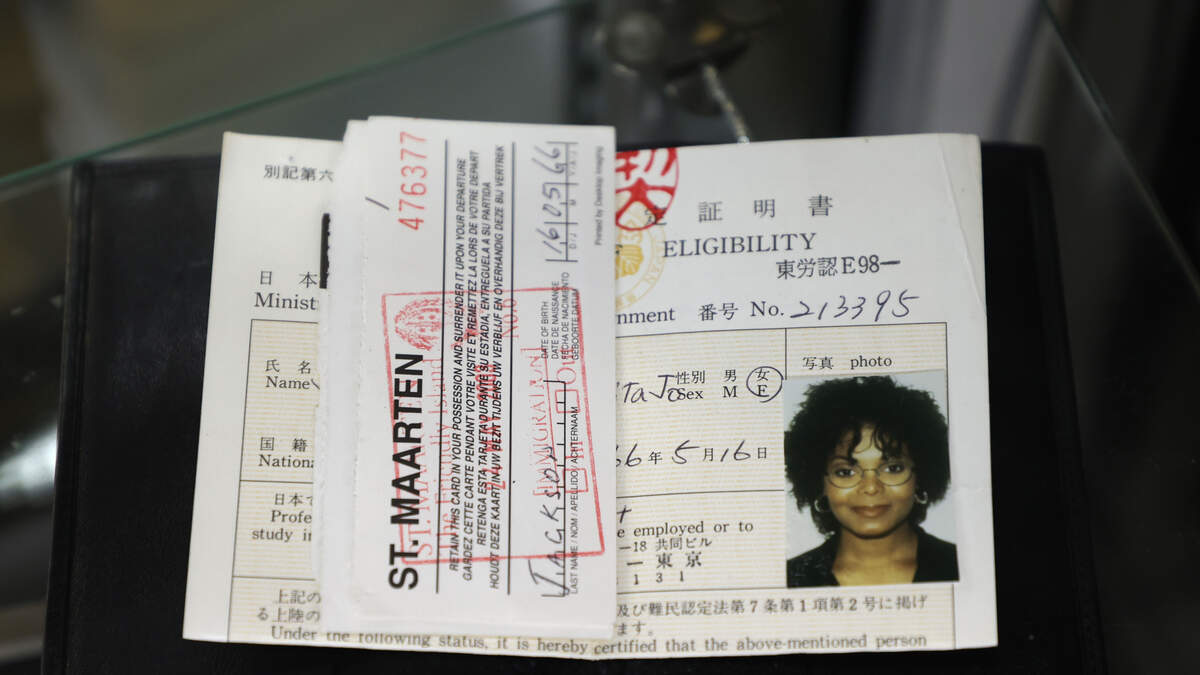 別記第六
定 証 明 書
ELIGIBILITY
東労認E98-
日 本
Minist
nment 番号 No. 213395
氏 名
Name
性別 男 女
Sex M F
写真 photo
国 籍
National
66年5月16日
日本で
Profe
study in
e employed or to
-18 共同ビル
- 東 京
1 3 1
上記の
る上陸の
及び難民認定法第7条第1項第2号に掲げ
ます。
Under the following status, it is hereby certified that the above-mentioned person
476377
ST. MAARTEN
RETAIN THIS CARD IN YOUR POSSESSION AND SURRENDER IT UPON YOUR DEPARTURE
GARDEZ CETTE CARTE PENDANT VOTRE VISITE ET REMETTEZ LA LORS DE VOTRE DEPART
RETENGA ESTA TARJETA DURANTE SU ESTADIA, ENTREGUELA A SU PARTIDA
HOUDT DEZE KAART IN UW BEZIT TIJDENS UW VERBLIJF EN OVERHANDIG DEZE BIJ VERTREK
The Friendly Island
IMMIGRATION
Jackson
LAST NAME / NOM / APELLIDO / ACHTERNAAM
160566
DATE OF BIRTH
DATE DE NAISSANCE
FECHA DE NACIMIENTO
GEBOORTE DATUM
Printed by Desktop Imaging